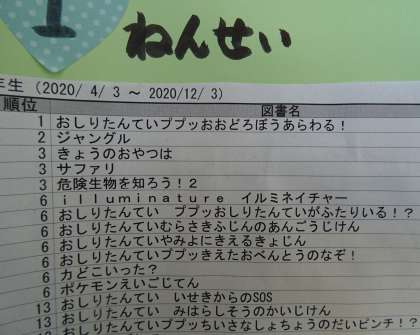 1 ねんせい
年生 (2020/ 4/ 3 ～ 2020/12/ 3)
順位 図書名
1 おしりたんていププッおおどろぼうあらわる！
2 ジャングル
3 きょうのおやつは
3 サファリ
3 危険生物を知ろう！２
6 ｉｌｌｕｍｉｎａｔｕｒｅ　イルミネイチャー
6 おしりたんてい　ププッおしりたんていがふたりいる！？
6 おしりたんていむらさきふじんのあんごうじけん
6 おしりたんていやみよにきえるきょじん
6 おしりたんていププッきえたおべんとうのなぞ！
6 カどこいった？
6 ポケモンえいごじてん
13 おしりたんてい　いせきからのSOS
13 おしりたんてい　みはらしそうのかいじけん
13 おしりたんていププッちいさなしょちょうのだいピンチ！？